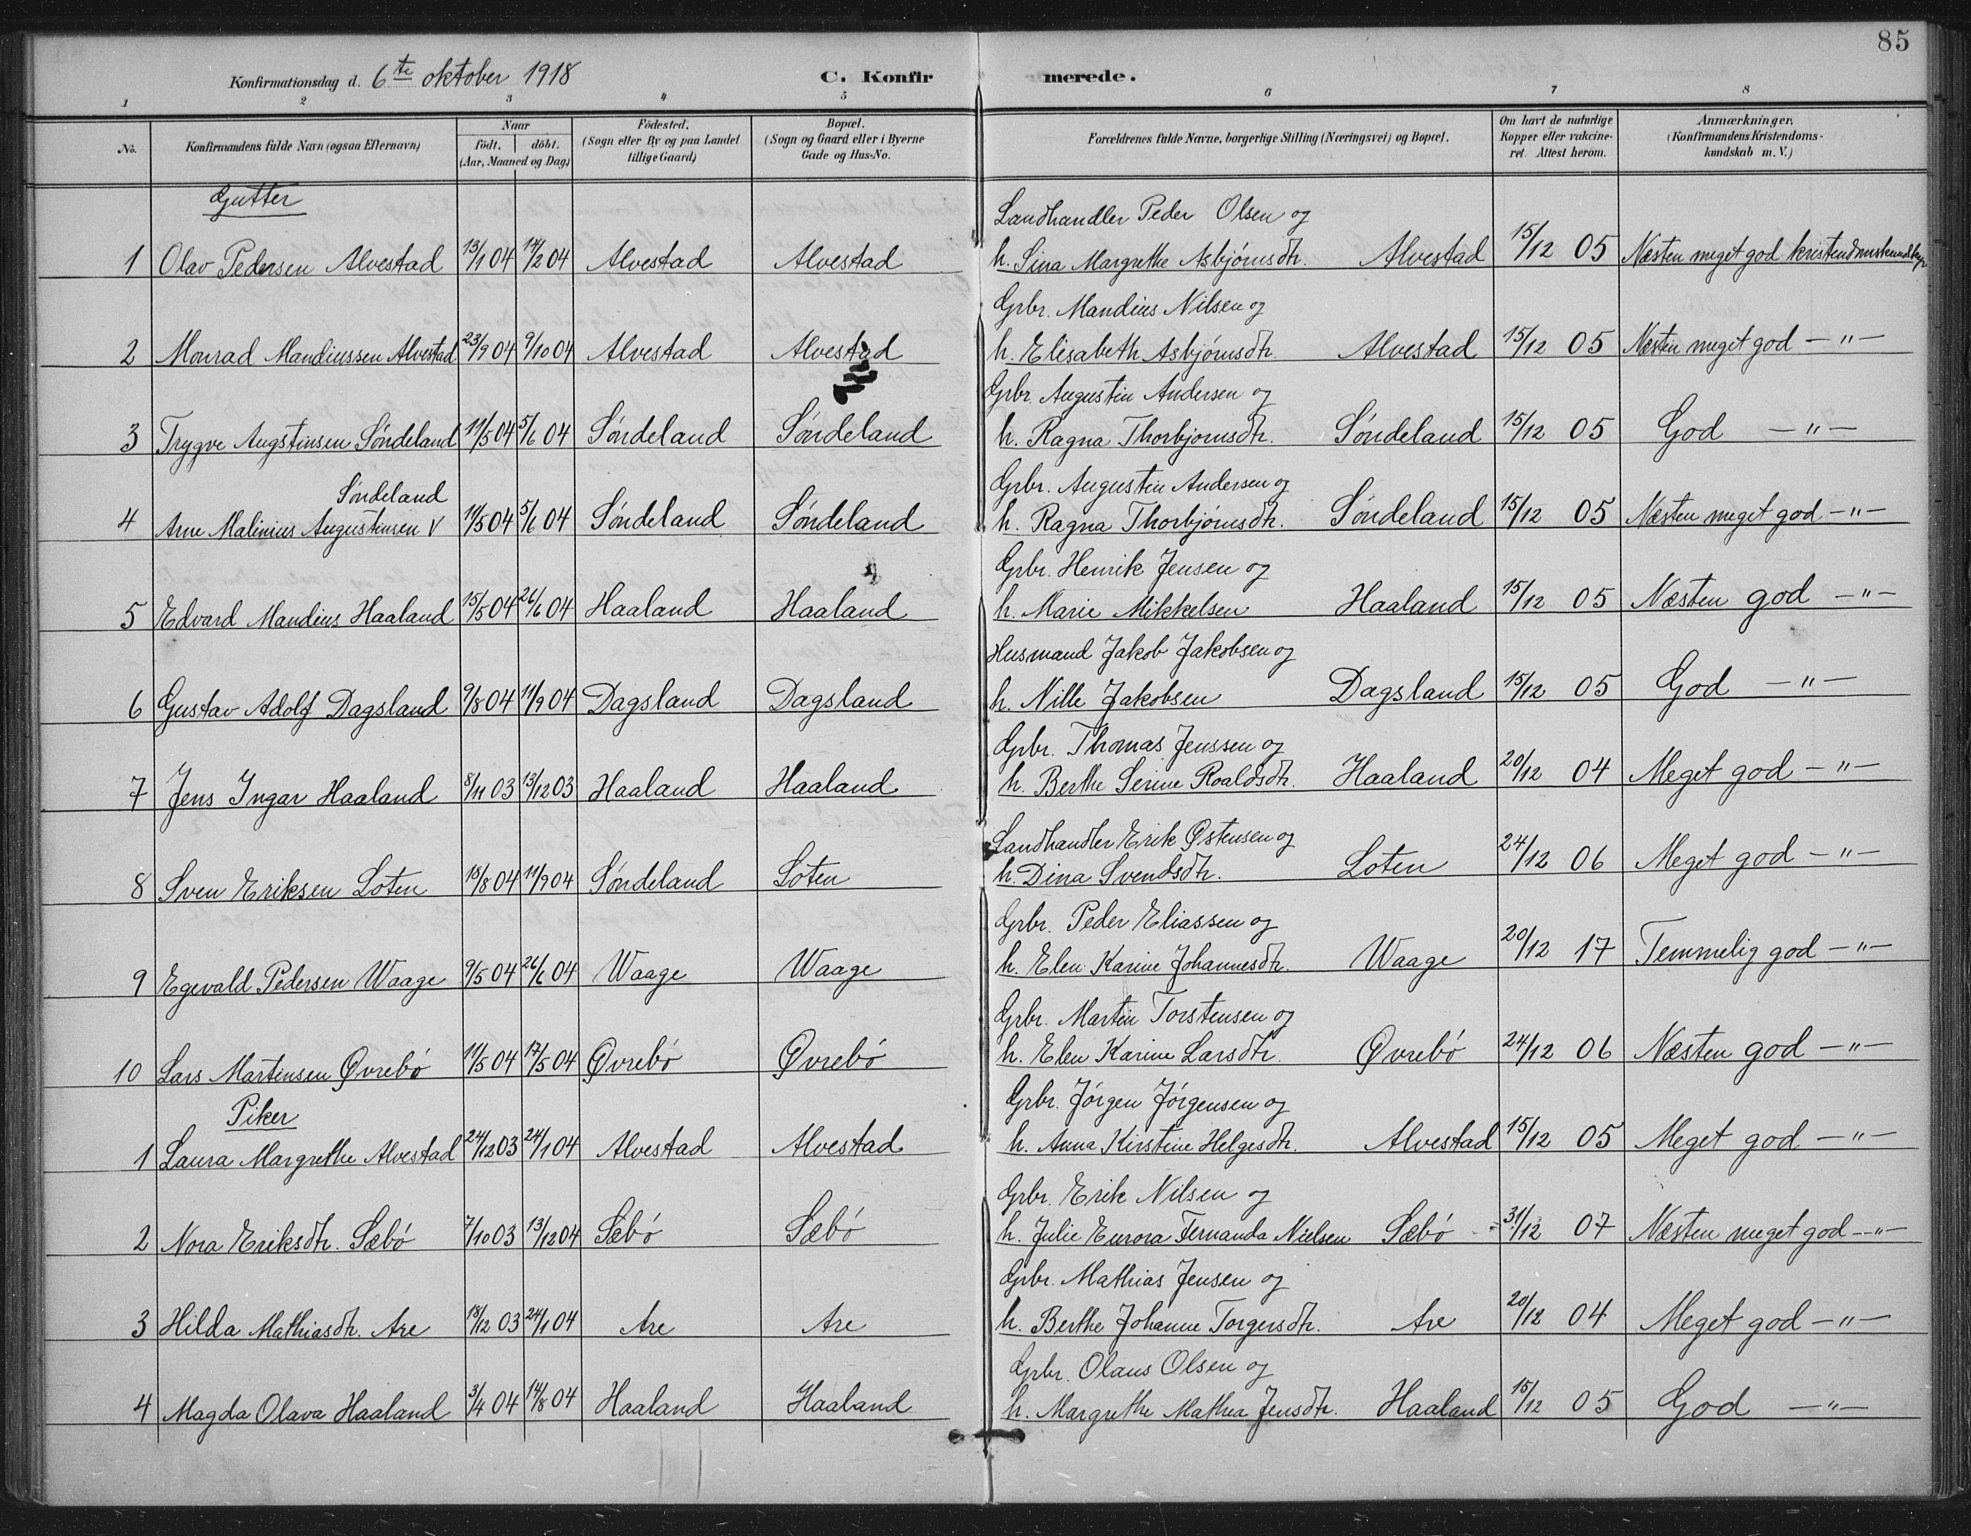 85
Konfirmationsdag d. 6te oktober 1918 C. Konfirmerede.
1 2 3 4 5 6 7 8
No. Konfirmandens fulde Navn (ogsaa Efternavn) Naar født. døbt. (Aar, Maaned og Dag) Fødested. (Sogn eller By og paa Landet tillige Gaard) Bopæl. (Sogn og Gaard eller i Byerne Gade og Hus-No. Forældrenes fulde Navne, borgerlige Stilling (Næringsvei) og Bopæl. Om havt de naturlige Kopper eller vakcineret. Attest herom. Anmærkninger. (Konfirmandens Kristendomskundskab m. V.)
Gutter
Landhandler Peder Olsen og
1 Olav Pedersen Alvestad 13/1 04 14/2 04 Alvestad Alvestad h. Sina Margrethe Asbjørnsdtr. Alvestad 15/12 05 Næsten meget god
Grbr. Mandius Nilsen og
2 Monrad Mandiussen Alvestad 23/9 04 9/10 04 Alvestad Alvestad h. Elisabeth Asbjørnsdtr. Alvestad 15/12 05 Næsten meget god — „ —
Grbr. Augustin Andersen og
3 Trygve Augstinsen Søndeland 11/5 04 5/6 04 Søndeland Søndeland h. Ragna Thorbjørnsdtr. Søndeland 15/12 05 God — „ —
Søndeland Grbr. Augustin Andersen og
4 Arne Malinius Augustinsen V 11/5 04 5/6 04 Søndeland Søndeland h. Ragna Thorbjørnsdtr. Søndeland 15/12 05 Næsten meget god — „ —
Grbr. Henrik Jensen og
5 Edvard Mandius Haaland 15/5 04 26/6 04 Haaland Haaland h. Marie Mikkelsen Haaland 15/12 05 Næsten god — „ —
Husmand Jakob Jakobsen og
6 Gustav Adolf Dagsland 9/8 04 11/9 04 Dagsland Dagsland h. Nille Jakobsen Dagsland 15/12 05 God — „ —
Grbr. Thomas Jenssen og
7 Jens Ingar Haaland 8/11 03 13/12 03 Haaland Haaland h. Berthe Serine Roaldsdtr. Haaland 20/12 04 Meget god — „ —
Landhandler Erik Østensen og
8 Sven Eriksen Loten 18/8 04 11/9 04 Søndeland Loten h. Dina Svendsdtr. Loten 24/12 06 Meget god — „ —
Grbr. Peder Eliassen og
9 Egevald Pedersen Waage 9/5 04 26/6 04 Waage Waage h. Elen Karine Johannesdtr. Waage 20/12 17 Temmelig god — „ —
Grbr. Martin Torstensen og
10 Lars Martensen Øvrebø 11/5 04 17/5 04 Øvrebø Øvrebø h. Elen Karine Larsdtr. Øvrebø 24/12 06 Næsten god — „ —
Piker
Grbr. Jørgen Jørgensen og
1 Laura Margrethe Alvestad 24/12 03 24/1 04 Alvestad Alvestad h. Anna Kirstine Helgesdtr. Alvestad 15/12 05 Meget god — „ —
Grbr. Erik Nilsen og
2 Nora Eriksdtr. Sæbø 7/10 03 13/12 04 Sæbø Sæbø h. Julie Eurora Fernanda Nielsen Sæbø 31/12 07 Næsten meget god — „ —
Grbr. Mathias Jensen og
3 Hilda Mathiasdtr. Are 18/12 03 24/1 04 Are Are h. Berthe Johanne Torgersdtr. Are 20/12 04 Meget god — „ —
Grbr. Olaus Olsen og
4 Magda Olava Haaland 3/4 04 14/8 04 Haaland Haaland h. Margrethe Mathea Jensdtr. Haaland 15/12 05 God — „ —